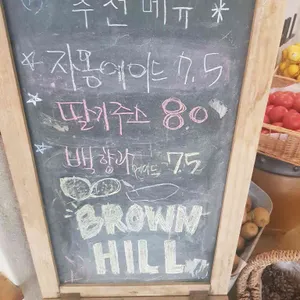 추천 메뉴 *
자몽에이드 7.5
딸기주스 8.0
백향과에이드 7.5
BROWN
HILL